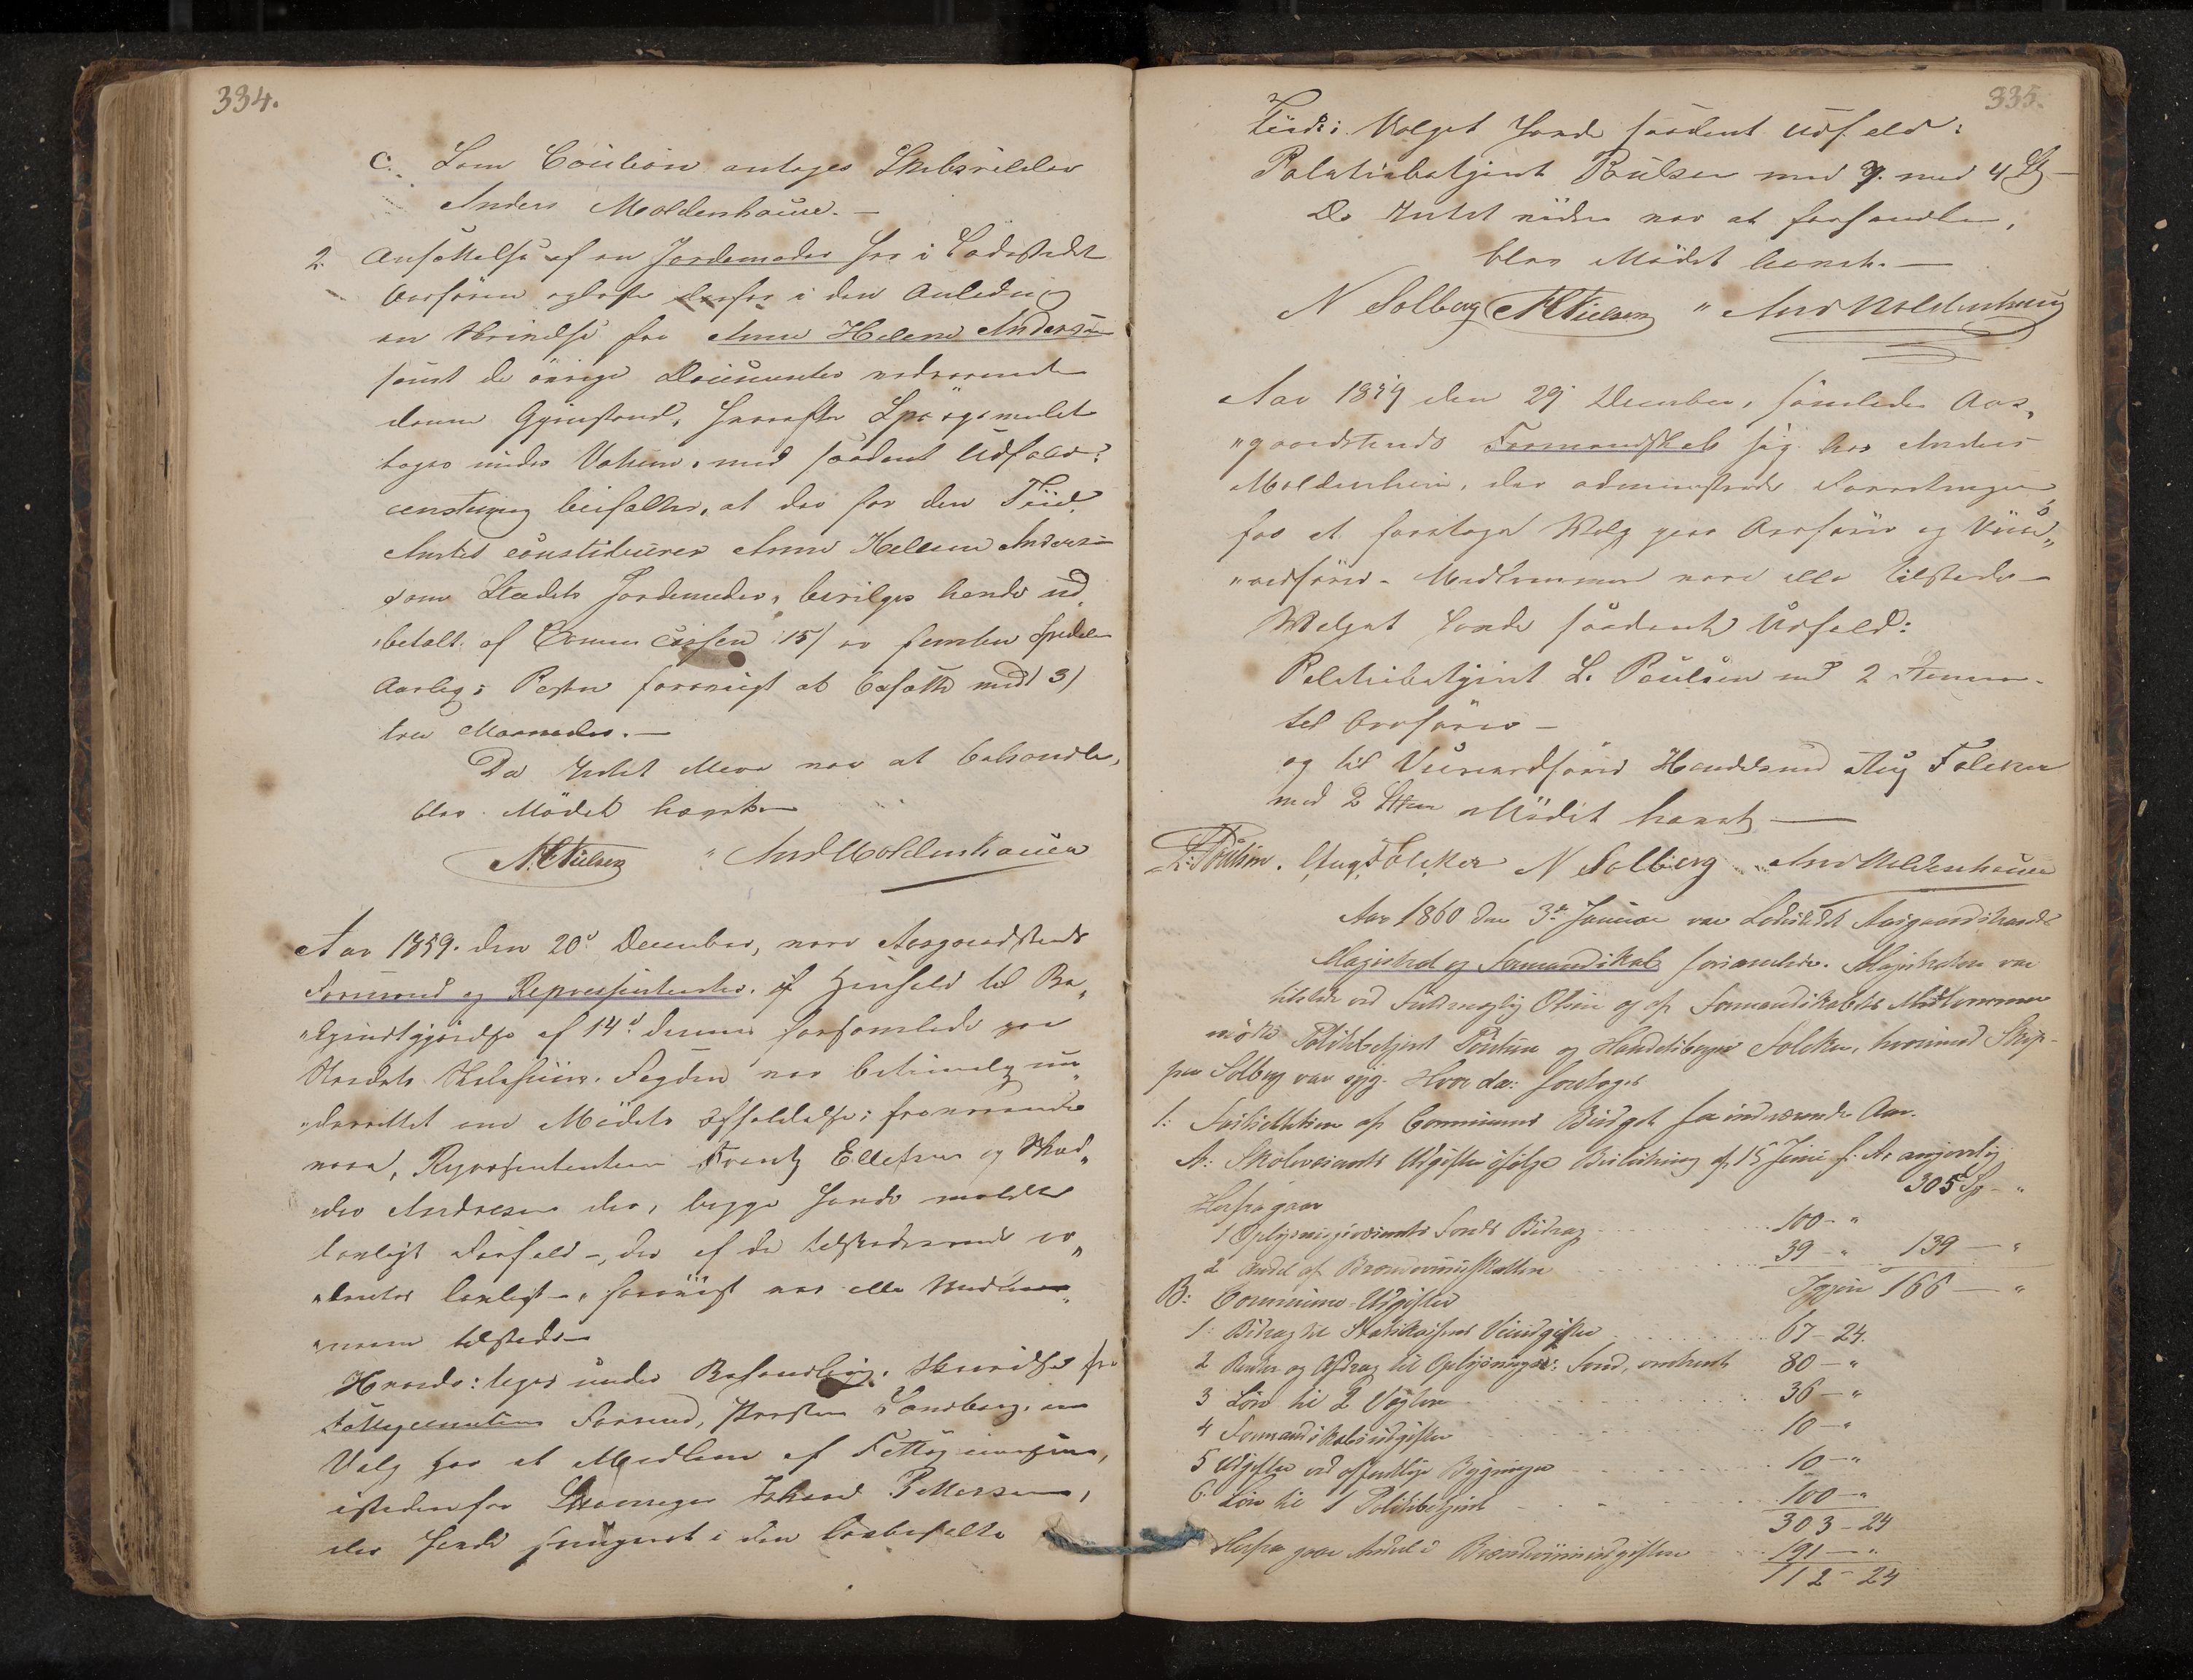 334.
C. Som Caution antages Skibsrheder
Anders Moldenhauer. —
2. Ansættelse af en Jordemoder her i Ladestedet
Ordføren oplæste derfor i den Anledning
en Skrivelse fra Anne Helene Andersen
samt de øvrige Documenter vedrørende
denne Gjenstand, hvorefter Spørgsmalet
toges under Votering, med saadant Udfald:
enstemmig bifaldes, at der for den Tiid
constitueres Anne Helene Andersen
som Stædets Jordemoder, bevilges hende ud¬
betalt af Communecassen 15/ er femten Spesidaler
Aarlig; Posten forøvrigt at besætte med 3/
tree Maaneder. —
Da Intet Mere var at behandle,
blev Mødet hævet —
N. C. Nielsen " And Moldenhauer
Aar 1859. den 20de December, vare Aasgaardstrands
Formænd og Repræsentanter, i Henhold til Be¬
"kjendtgjørelse af 14de dennes forsamlede paa
Stædets Skolehuus. Fogden var betimelig un¬
"derrettet om Mødets Afholdelse; fraværende
vare, Repræsentanterne Frantz Ellefsen og
Andresen der, begge havde meldt
lovligt Forfald —, der af de tilstedeværende er¬
lovligt —, forøvrigt var alle Medlem¬
"merne tilstede —
Hvorda: toges under Behandling. Skrivelse fra
Fattigcommissionens Formand, Præsten Landberg, om
Valg paa et Medlem af Fattigcommissionen,
istedenfor Pettersen,
der havde fungeret i den lovbefalte
335.
Tiid: Valget havde saadant Udfald:
Politiebetjent Poulsen med 7. med 4 St —
Da Intet videre var at forhandle,
blev Mødet hævet. —
N Solberg N C Nielsen " And Moldenhauer
Aar 1859 den 29 December, samledes Aas¬
"gaardstrands Formandskab sig hos Anders
Moldenhauer, der administrerede Forretningen
for at foretage Valg paa Ordfører og Vice¬
"ordfører — Medlemmerne vare alle tilstede —
Valget havde saadant Udfald:
Politiebetjent L. Poulsen med 2 Stemmer
til Ordfører —
og til Viceordfører Handelsmd Aug Folcker
med 2 Stemer Mødet hævet —
L: Poulsen. Aug. Folcker N Solberg And Moldenhauer
Aar 1860 den 3die Januar var Ladestedet Aasgaardstrands
Magistrat og Formandskab forsamlede. Magistraten var
tilstede ved Fuldmægtig Olsen og af Formandskabets Medlemmer
mødte Politibetjent Poulsen og Handelsborger Folcker, hvorimod Skip¬
per Solberg var syg. Hvor da: foretoges
1: Fastsættelsen af Communens Budget for indeværende Aar.
A: Skolevæsenets Udgifter ifølge Beslutning af 15 Juni f: A: angivelig
305 Sp — "
Herfra gaar
1 Oplysningsvæsenets Fonds Bidrag 100 — "
2 Andel af Brændeviinsskatten 39 — " 139 — "
Igjen 166 — "
B: Commune-Udgifter
1: Bidrag til Statskassens Veiudgifter 67 — 24.
2 Renter og Afdrag til Oplysningsv: Fond, omtrent 80 — "
3 Løn til 2 Vægtere 36 — "
4 Formandskabsudgifter 10 — "
5 Udgifter ved offentlige Bygninger 10 — "
6 Løn til 1 Politibetjent 100 — "
303 — 24
Herfra gaar Andel i Brændeviinsudgiften 191 — "
112 — 24